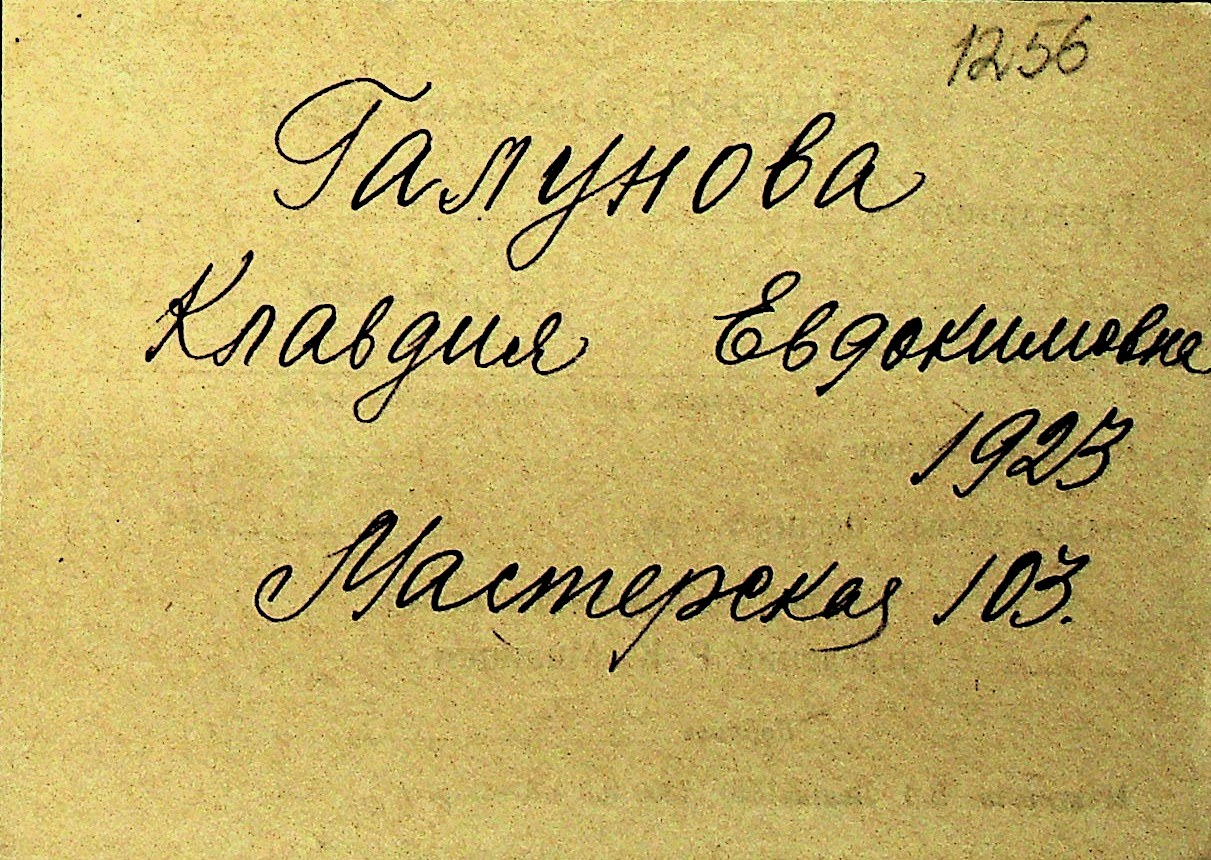 1256
Галунова
Клавдия Евдокимовна
1923
Мастерская 103.